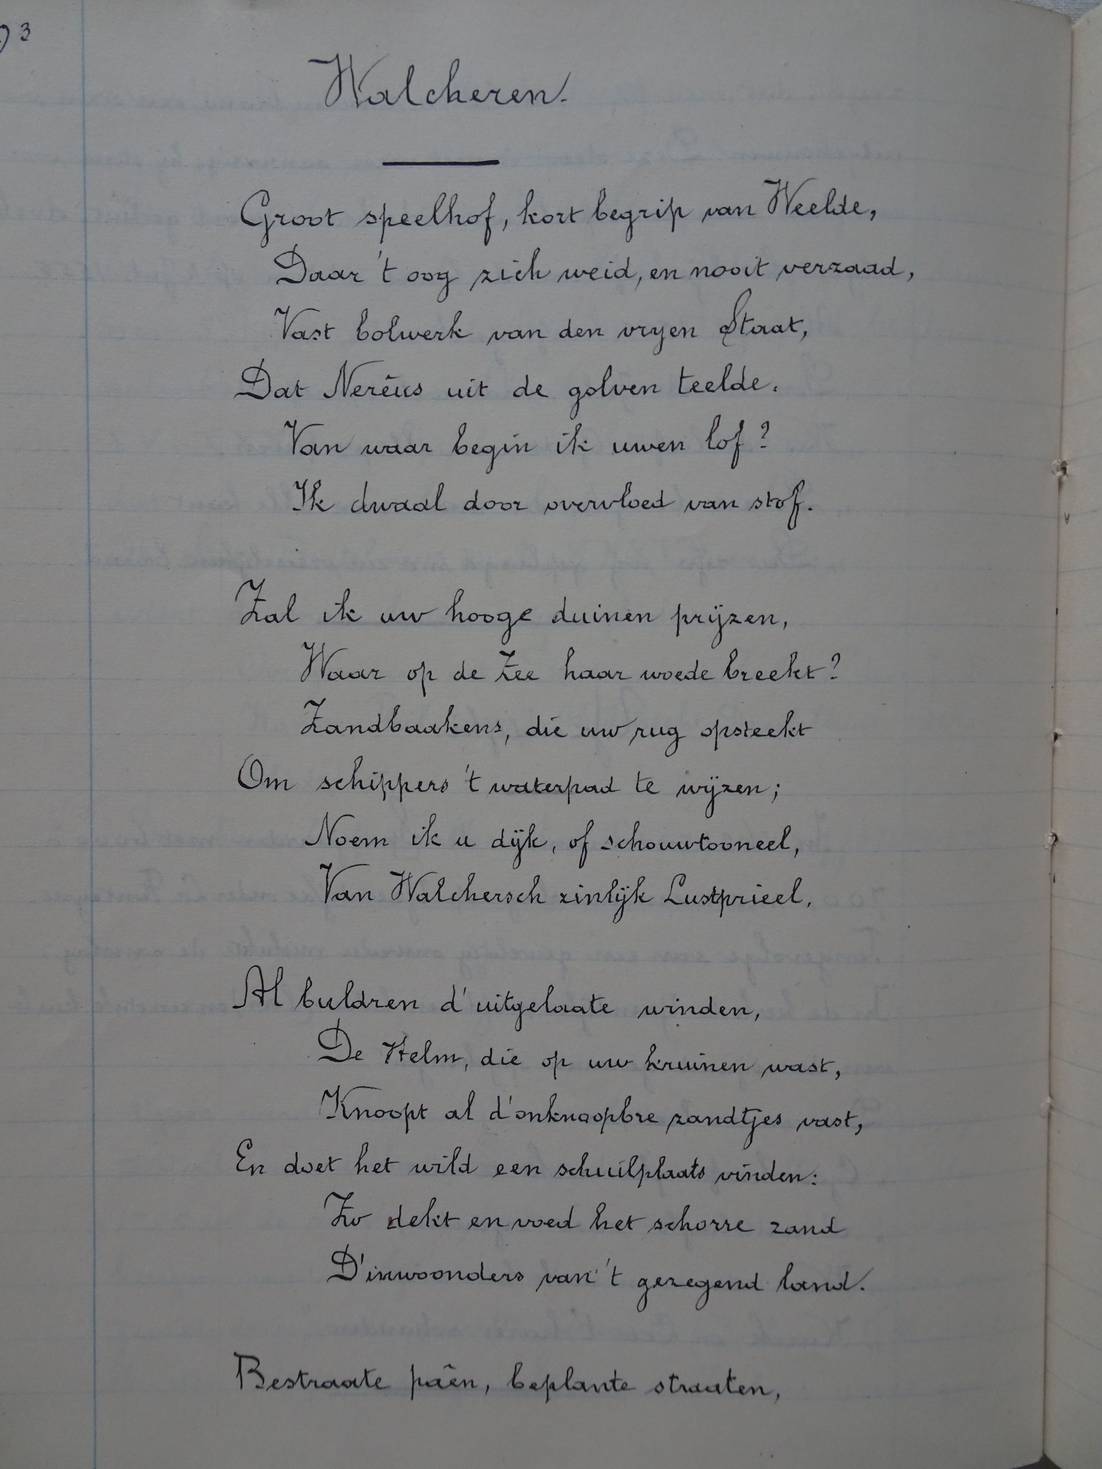 3
Walcheren.
Groot speelhof, kort begrip van Weelde,
Daar 't oog zich weid, en nooit verzaad,
Vast bolwerk van den vryen Staat,
Dat Nerëus uit de golven teelde.
Van waar begin ik uwen lof?
Ik dwaal door overvloed van stof.
Zal ik uw hooge duinen prijzen,
Waar op de Zee haar woede breekt?
Zandbaakens, die uw rug opsteekt
Om schippers 't waterpad te wijzen;
Noem ik u dijk, of schouwtooneel,
Van Walchersch zinlijk Lustprieel.
Al buldren d'uitgelaate winden,
De Helm, die op uw kruinen wast,
Knoopt al d'onknoopbre zandtjes vast,
En doet het wild een schuilplaats vinden:
Zo dekt en voed het schorre zand
D'inwoonders van 't gezegend land.
Bestraate paên, beplante straaten,